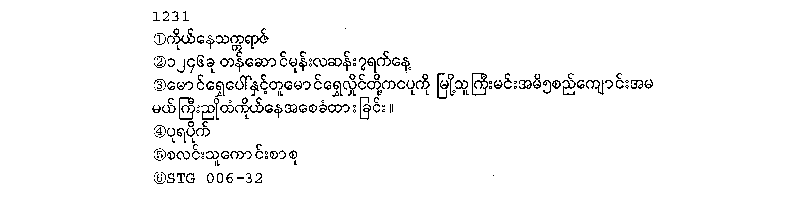 1231
①ကိုယ်နေသက္ကရာဇ်
②၁၂၄၆ခု တန်ဆောင်မုန်းလဆန်း၇ရက်နေ့
③မောင်ရွှေပေါ်နှင့်တူမောင်ရွှေလှိုင်တို့ကငပုကို မြို့သူကြီးမင်းအမိ၅စည်ကျောင်းအမ
မယ်ကြီးညိုထံကိုယ်နေအစေခံထားခြင်း။
④ပုရပိုက်
⑤စလင်းသူကောင်းစာစု
⑥STG 006-32